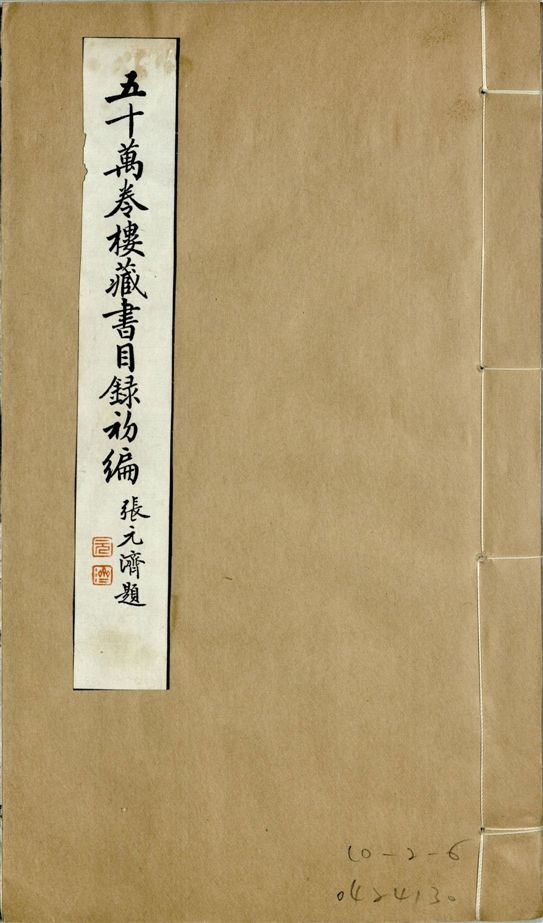 五十萬卷樓藏書目錄初編
張元濟題
元
濟
10-2-6
0424130